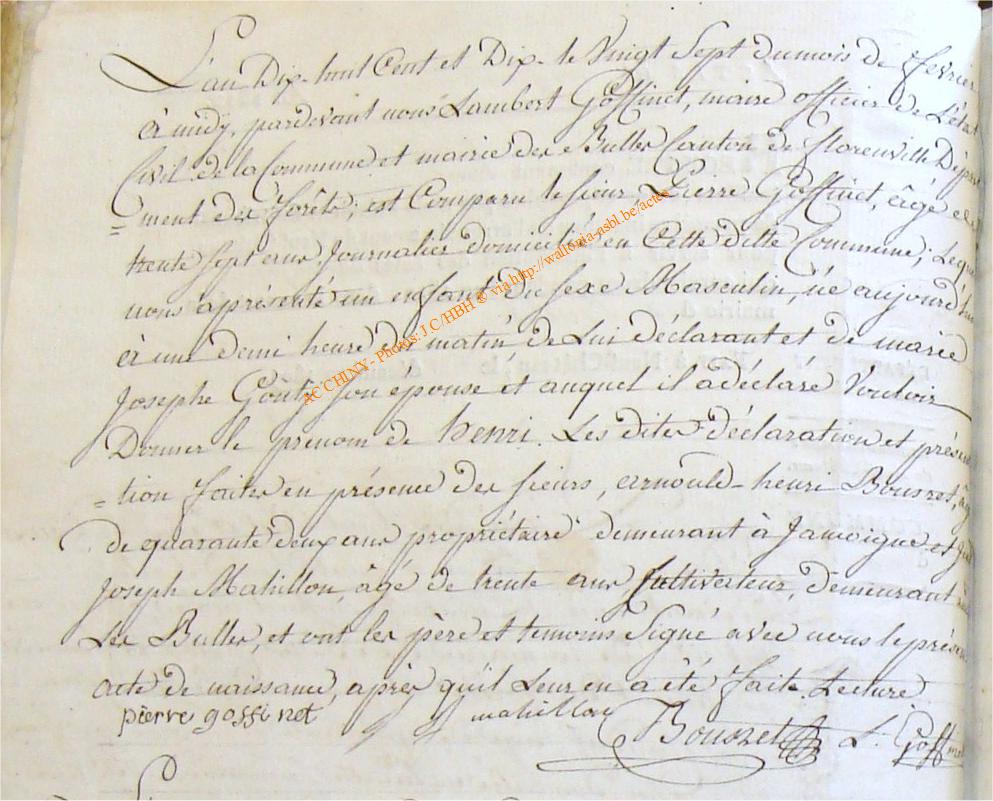 L'an Dix-huit Cent et Dix-le Vingt Sept du mois de fevrier
à midy, pardevant nous Lambert Goffinet, maire officier de L'état
Civil de la Commune et mairie des Bulles Canton de florenville Départe
=ment des forêts, est Comparu le sieur Pierre Goffinet, âgé de
trente sept ans, journalier domicilié en Cette ditte Commune; Lequel
nous a présenté un enfant du sexe Masculin, né aujourd'hui
à une demi heure du matin de Lui déclarant et de marie
Josephe son epouse et auquel il a déclaré Vouloir
Donner le prénom de henri. Les dites déclaration et présen
=tion faites en présence des sieurs, arnould-henri Bousret, âgé
de quarante deux ans propriétaire demeurant à Jamoigne et
Joseph Mahillon, âgé de trente ans Cultiverteur, demeurant à
Les Bulles, et ont les père et temoins Signé avec nous le présent
acte de naissance, après qu'il Leur en a été faite Lecture
pierre gossinet mahillon Bousret L. Goffinet
AC CHINY - Photos: J.C/HBH ® via http://wallonia-asbl.be/actes